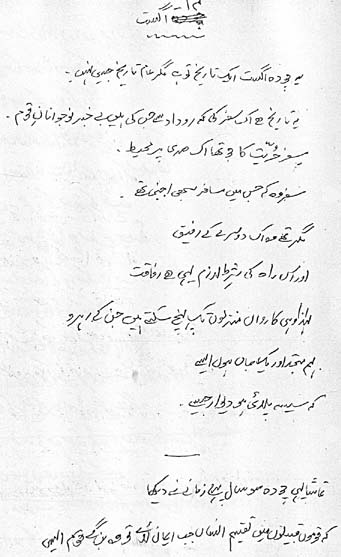 ۱۴ اگست
یہ چودہ اگست ایک تاریخ تو ہے مگر عام تاریخ جیسی نہیں۔
یہ تاریخ ہے اک سفر کی کہ روداد سے جس کی ہیں بے خبر نوجوانانِ قوم۔
یہ سفر حُریّت کا جو تھا اک صدی پر محیط۔
سفر وہ کہ جس میں مسافر سبھی اجنبی تھے۔
مگر تھے وہ اک دوسرے کے رفیق
اور اس راہ کی شرطِ لازم یہی ہے رفاقت
لہٰذا وہی کارواں منزلوں تک پہنچ سکتے ہیں جن کے رہرو
بہم متحد اور یک جاں ہوں ایسے
کہ سیسہ پلائی ہو دیوار جیسے۔
تماشا یہی چودہ سو سال پہلے زمانے نے دیکھا
کہ قوموں قبیلوں میں تقسیم انساں جب ایمان لائے تو وہ بن گئے قوم ایسی